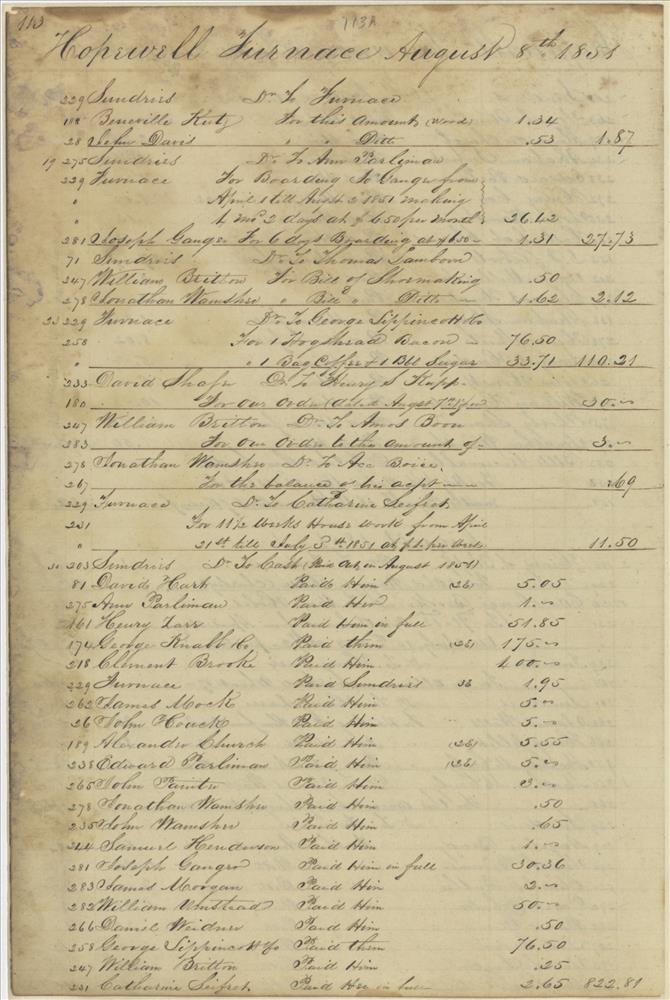 113 113A
Hopewell Furnace August 8th 1851
229 Sundries Dr To Furnace
182 Beneville Kutz For this amount (wood) 1.34
28 John Davis " " Ditto .53 1.87
19 275 Sundries Dr To Ann Parliman
229 Furnace For Boarding Jo Ganger from
" April 1 till August 2 1851 making
" 4 mo 2 days at $6.50 per Month 26.42
281 Joseph Ganger For 6 days Boarding at $6.50 1.31 27.73
71 Sundries Dr To Thomas Lamborn
247 William Britton For Bill of Shoemaking .50
278 Jonathan Wamsher " Bill " Ditto 1.62 2.12
23 229 Furnace Dr To George Lippincott & Co
258 For 1 Hogshead Bacon 76.50
" " 1 Bag Coffee & 1 Bbl Sugar 33.71 110.21
233 David Shafer Dr To Henry S Kupp
180 For our Order (dated August 7 30.~
247 William Britton Dr To Amos Boon
283 For our Order to the amount of 3.~
278 Jonathan Wamsher Dr To Ace Boice
267 For the balance of his acpt .69
229 Furnace Dr To Catharine Seifret
231 For 11 1/2 Weeks House work from April
" 21st till July 5th 1851 at $1. per week 11.50
31 203 Sundries Dr To Cash (Paid Out in August 1851)
81 David Hart Paid Him (26) 5.05
275 Ann Parliman Paid Her 1.~
161 Henry Zarr Paid Him in full 51.85
174 George Knabb & Co Paid them (26) 175.~
218 Clement Brooke Paid Him 400.~
229 Furnace Paid Sundries 26 1.95
262 James Mock Paid Him 5.~
26 John Houck Paid Him 5.~
189 Alexander Church Paid Him (26) 5.55
238 Edward Parliman Paid Him (26) 5.~
265 John Painter Paid Him 3.~
278 Jonathan Wamsher Paid Him .50
235 John Wamsher Paid Him .65
244 Samuel Henderson Paid Him 1.~
281 Joseph Ganger Paid Him in full 30.36
283 James Morgan Paid Him 2.~
282 William Umstead Paid Him 50.~
266 Daniel Weidner Paid Him .50
258 George Lippincott & Co Paid them 76.50
247 William Britton Paid Him .25
231 Catharine Seifret Paid Her in full 2.65 822.81